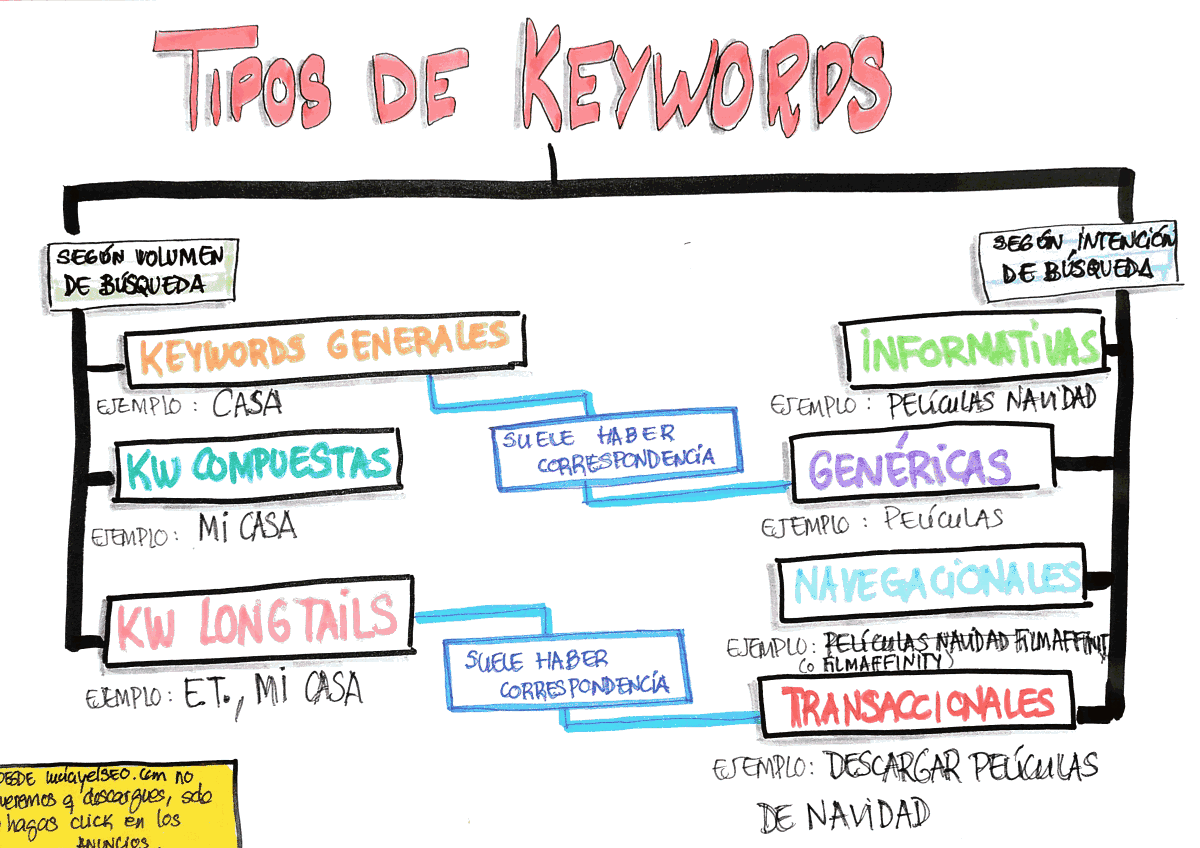 TIPOS DE KEYWORDS
SEGÚN VOLUMEN
DE BÚSQUEDA
KEYWORDS GENERALES
EJEMPLO: CASA
KW COMPUESTAS
EJEMPLO: MI CASA
KW LONGTAILS
EJEMPLO: ET., MI CASA
SUELE HABER
CORRESPONDENCIA
SUELE HABER
CORRESPONDENCIA
SEGÚN INTENCIÓN
DE BÚSQUEDA
INFORMATIVAS
EJEMPLO: PELÍCULAS NAVIDAD
GENÉRICAS
EJEMPLO: PELÍCULAS
NAVEGACIONALES
EJEMPLO: PELÍCULAS NAVIDAD FILMAFFINIT
(O FILMAFFINITY)
TRANSACCIONALES
EJEMPLO: DESCARGAR PELÍCULAS
DE NAVIDAD
no
q descargues, solo
hagas click en los
ANUNCIOS.